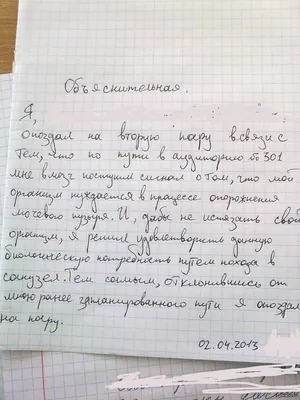 Объяснительная.
Я,
опоздал на вторую пару в связи с
тем, что по пути в аудиторию № 301
мне в мозг поступил сигнал о том, что мой
организм нуждается в процессе опорожнения
мочевого пузыря. И, дабы не истязать свой
организм, я решил удовлетворить данную
биологическую потребность путем похода в
санузел. Тем самым, отклонившись от
мною ранее запланированного пути я опоздал
на пару.
02.04.2013